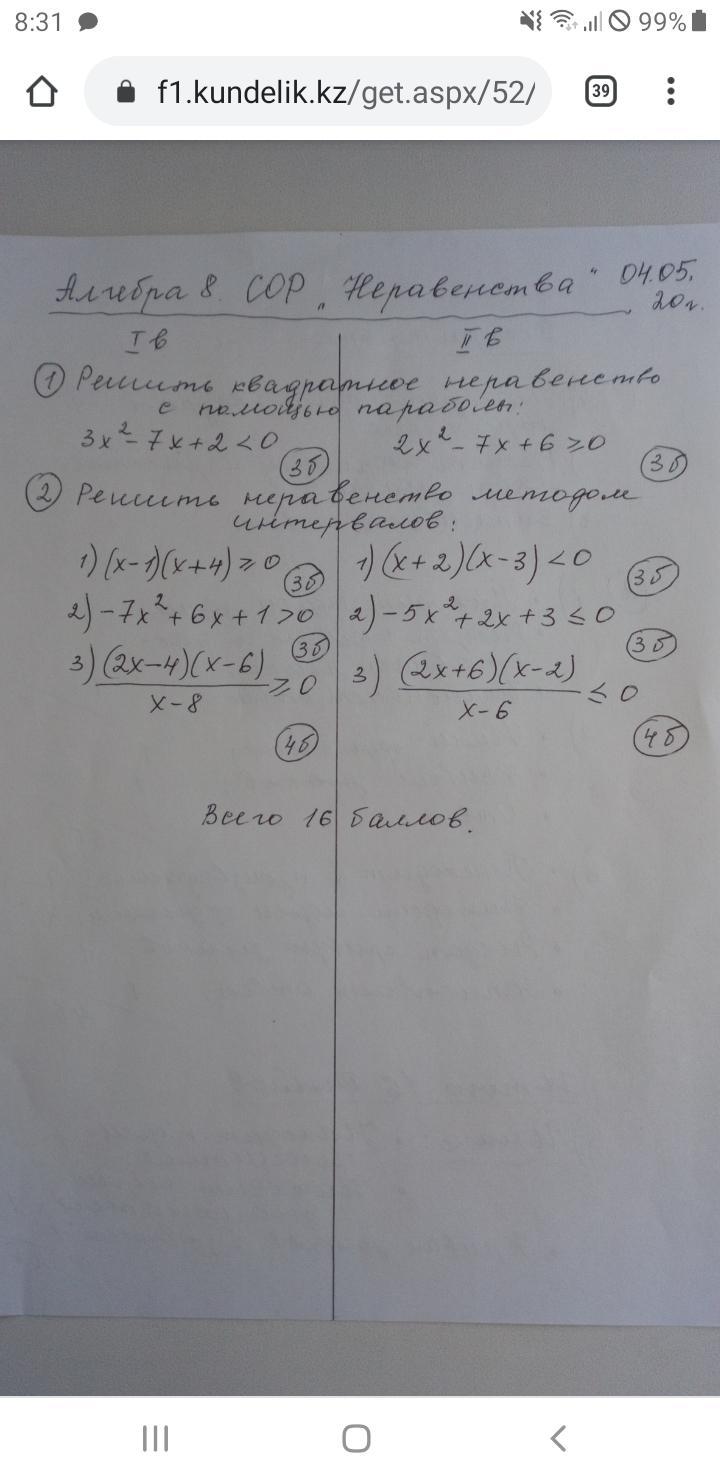 8:31 99%
f1.kundelik.kz/get.aspx/52/ 39
Алгебра 8. СОР „Неравенства" 04.05.
20г.
I в II в
① Решить квадратное неравенство
с помощью параболы:
3x² - 7x + 2 < 0 (3б) 2x² - 7x + 6 ≥ 0 (3б)
② Решить неравенство методом
интервалов:
1) (x-1)(x+4) ≥ 0 (3б) 1) (x+2)(x-3) < 0 (3б)
2) -7x² + 6x + 1 > 0 (3б) 2) -5x² + 2x + 3 ≤ 0 (3б)
3) (2x-4)(x-6) / x-8 ≥ 0 (4б) 3) (2x+6)(x-2) / x-6 ≤ 0 (4б)
Всего 16 баллов.